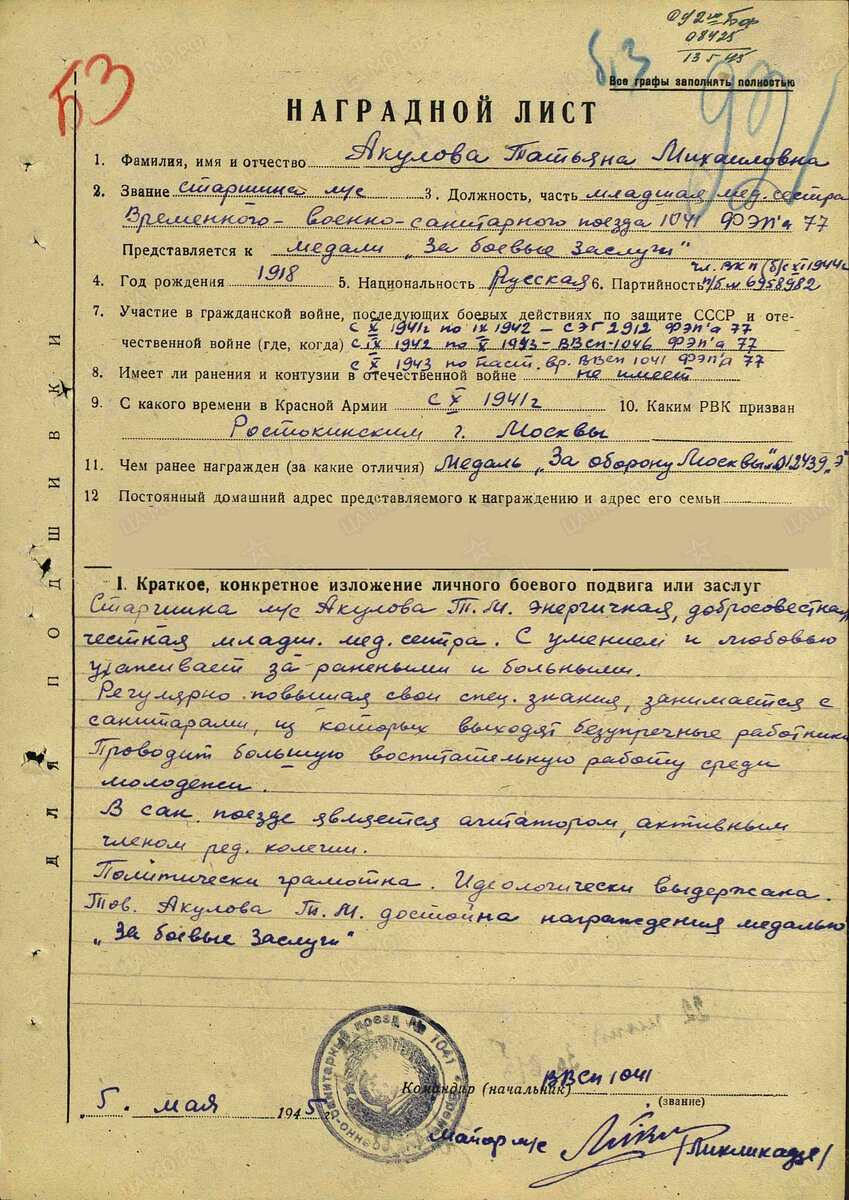 ОУ 2го Бф
08425
13 5 45
Б3
Б3
Все графы заполнять полностью
НАГРАДНОЙ ЛИСТ
1. Фамилия, имя и отчество Акулова Татьяна Михайловна
2. Звание старшина м/с 3. Должность, часть младшая мед. сестра
Временного-военно-санитарного поезда 1041 ФЭП'а 77
Представляется к медали "За боевые заслуги"
чл. ВКП(б) с XI 1944г
4. Год рождения 1918 5. Национальность Русская 6. Партийность п/б № 6958982
7. Участие в гражданской войне, последующих боевых действиях по защите СССР и оте-
с X 1941г по IX 1942 – СЭГ 2912 ФЭП'а 77
чественной войне (где, когда) с IX 1942 по X 1943 - ВВСП-1046 ФЭП'а 77
с X 1943 по наст. вр. ВВСП 1041 ФЭП'а 77
8. Имеет ли ранения и контузии в отечественной войне не имеет
9. С какого времени в Красной Армии с X 1941г 10. Каким РВК призван
Ростокинским г. Москвы
11. Чем ранее награжден (за какие отличия) Медаль "За оборону Москвы" 012439 "Э"
12 Постоянный домашний адрес представляемого к награждению и адрес его семьи
I. Краткое, конкретное изложение личного боевого подвига или заслуг
Старшина м/с Акулова Т.М. энергичная, добросовестная,
честная младш. мед. сестра. С умением и любовью
ухаживает за ранеными и больными.
Регулярно повышая свои спец. знания, занимается с
санитарами, из которых выходят безупречные работники
Проводит большую воспитательную работу среди
молодежи.
В сан. поезде является агитатором, активным
членом ред. колегии.
Политически грамотна. Идеологически выдержана.
Тов. Акулова Т.М. достойна награждения медалью
"За боевые Заслуги"
ДЛЯ ПОДШИВКИ
Военно-санитарный поезд № 1041
Командир (начальник) ВВСП 1041
(звание)
"5" мая 1945
майор м/с /Пикликадзе/